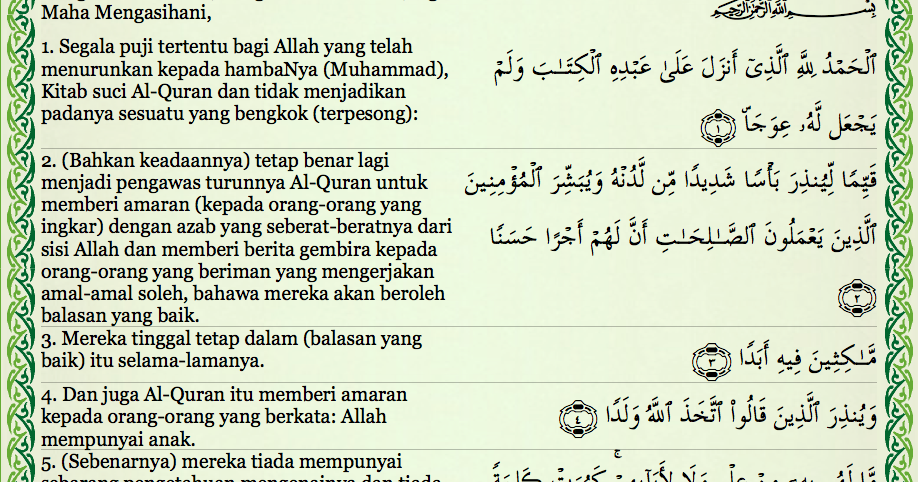 Maha Mengasihani,
1. Segala puji tertentu bagi Allah yang telah
menurunkan kepada hambaNya (Muhammad),
Kitab suci Al-Quran dan tidak menjadikan
padanya sesuatu yang bengkok (terpesong):
ٱلْحَمْدُ لِلَّهِ ٱلَّذِىٓ أَنزَلَ عَلَىٰ عَبْدِهِ ٱلْكِتَـٰبَ وَلَمْ
يَجْعَل لَّهُۥ عِوَجَاۜ ١
2. (Bahkan keadaannya) tetap benar lagi
menjadi pengawas turunnya Al-Quran untuk
memberi amaran (kepada orang-orang yang
ingkar) dengan azab yang seberat-beratnya dari
sisi Allah dan memberi berita gembira kepada
orang-orang yang beriman yang mengerjakan
amal-amal soleh, bahawa mereka akan beroleh
balasan yang baik.
قَيِّمًا لِّيُنذِرَ بَأْسًا شَدِيدًا مِّن لَّدُنْهُ وَيُبَشِّرَ ٱلْمُؤْمِنِينَ
ٱلَّذِينَ يَعْمَلُونَ ٱلصَّـٰلِحَـٰتِ أَنَّ لَهُمْ أَجْرًا حَسَنًا
٢
3. Mereka tinggal tetap dalam (balasan yang
baik) itu selama-lamanya.
مَّـٰكِثِينَ فِيهِ أَبَدًا ٣
4. Dan juga Al-Quran itu memberi amaran
kepada orang-orang yang berkata: Allah
mempunyai anak.
وَيُنذِرَ ٱلَّذِينَ قَالُوا۟ ٱتَّخَذَ ٱللَّهُ وَلَدًا ٤
5. (Sebenarnya) mereka tiada mempunyai